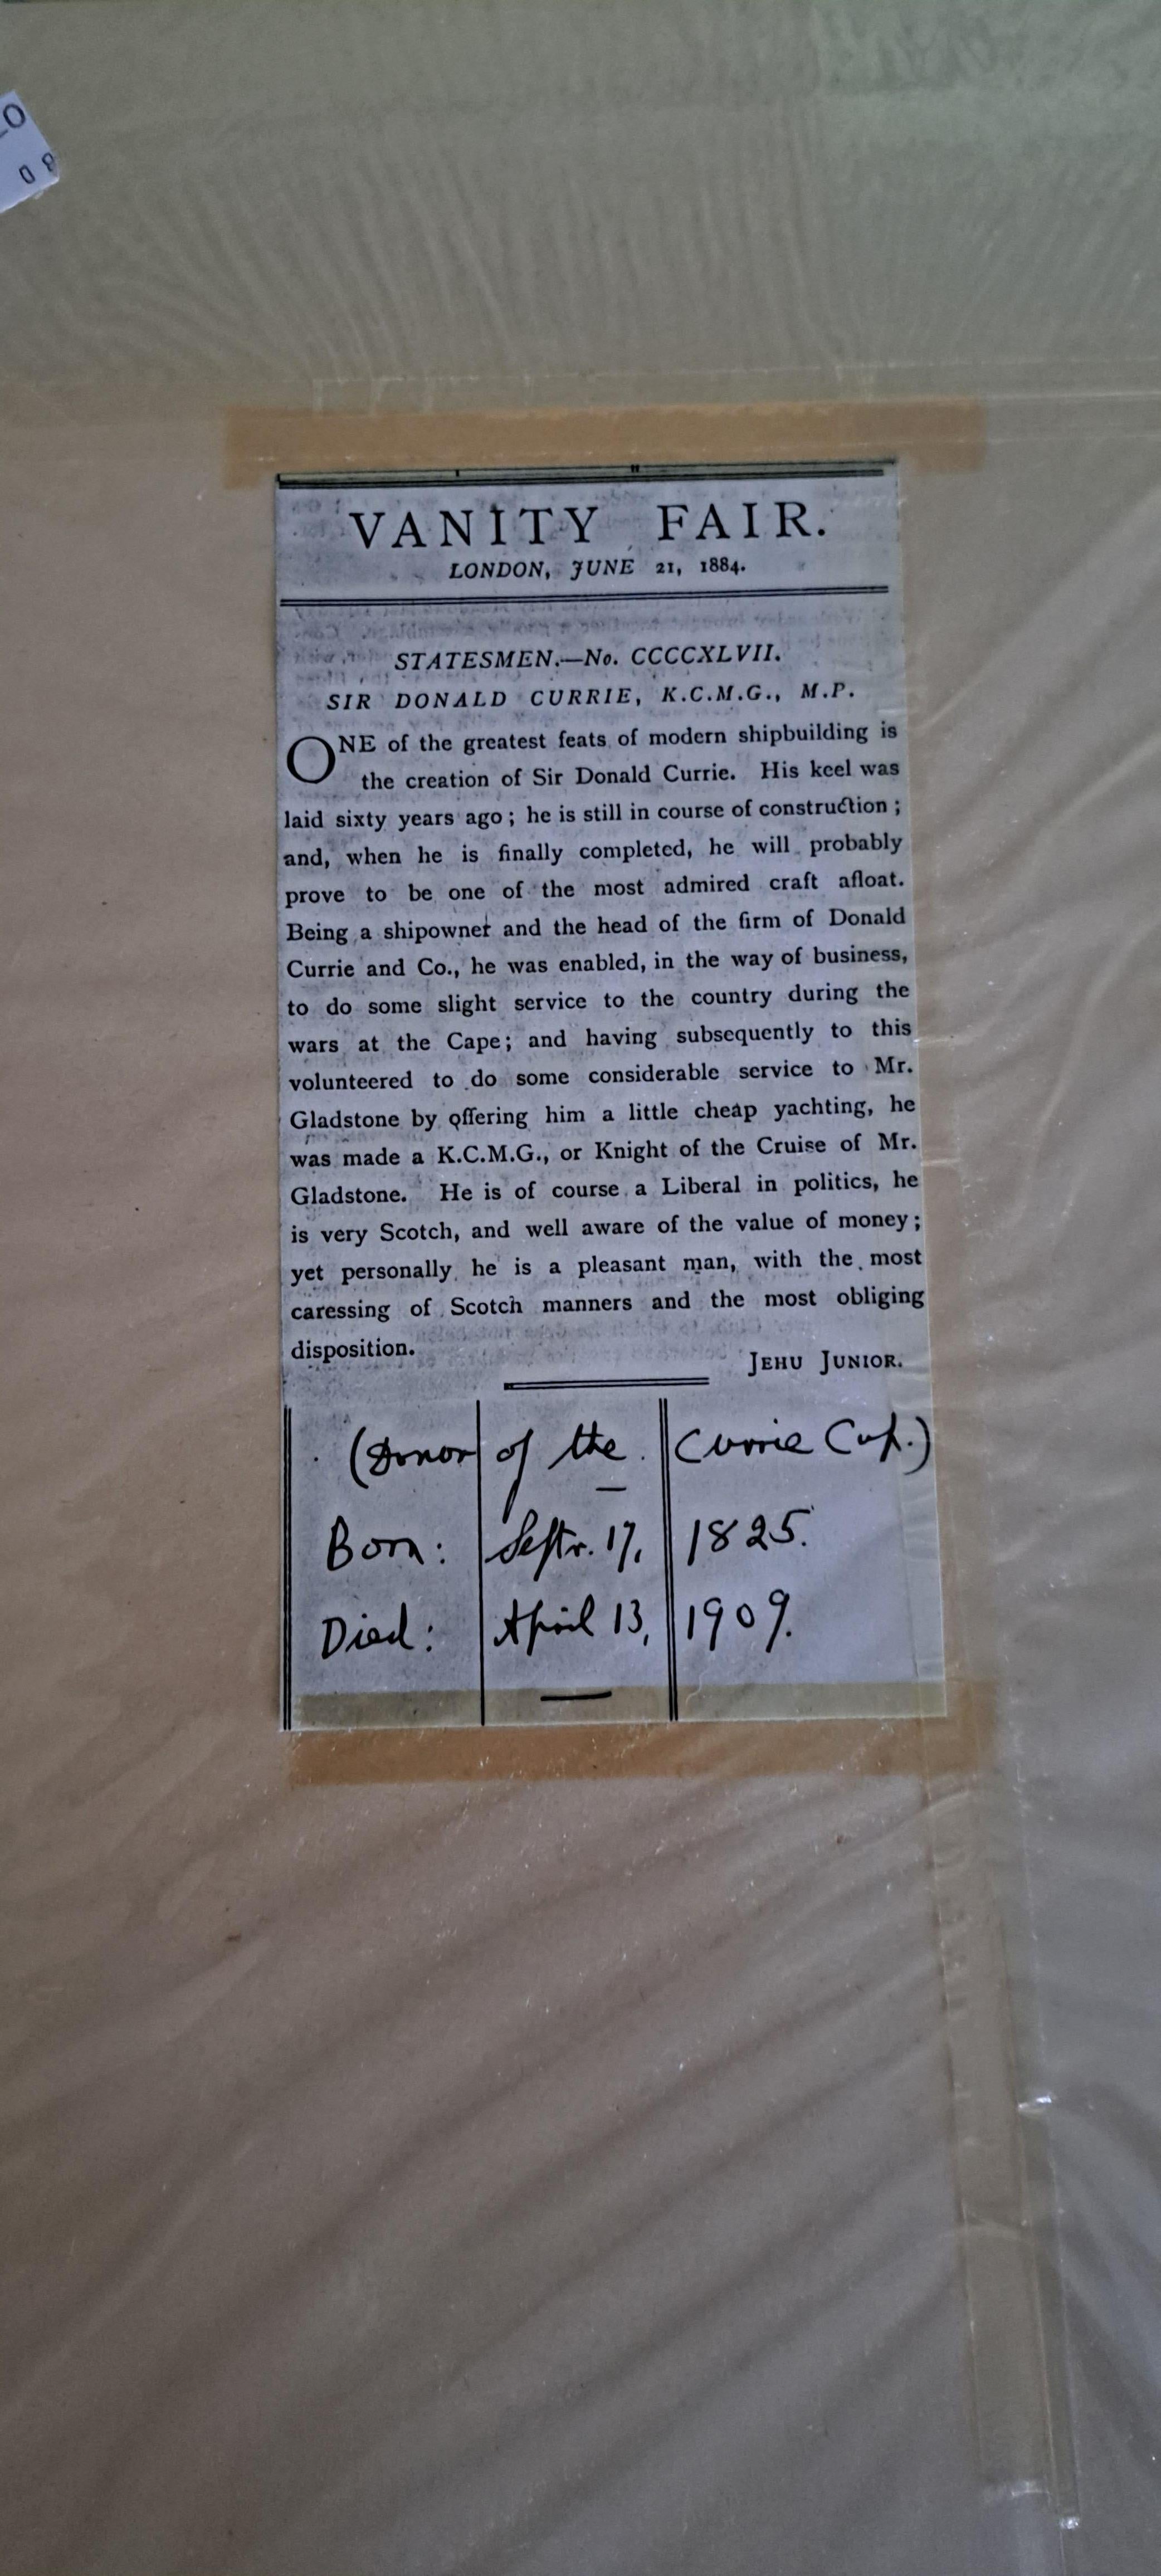 VANITY FAIR.
LONDON, JUNE 21, 1884.
STATESMEN.—No. CCCCXLVII.
SIR DONALD CURRIE, K.C.M.G., M.P.
ONE of the greatest feats of modern shipbuilding is
the creation of Sir Donald Currie. His keel was
laid sixty years ago; he is still in course of construction;
and, when he is finally completed, he will probably
prove to be one of the most admired craft afloat.
Being a shipowner and the head of the firm of Donald
Currie and Co., he was enabled, in the way of business,
to do some slight service to the country during the
wars at the Cape; and having subsequently to this
volunteered to do some considerable service to Mr.
Gladstone by offering him a little cheap yachting, he
was made a K.C.M.G., or Knight of the Cruise of Mr.
Gladstone. He is of course a Liberal in politics, he
is very Scotch, and well aware of the value of money;
yet personally he is a pleasant man, with the most
caressing of Scotch manners and the most obliging
disposition.
JEHU JUNIOR.
(Donor of the Currie Cup.)
Born: Septr. 17, 1825.
Died: April 13, 1909.